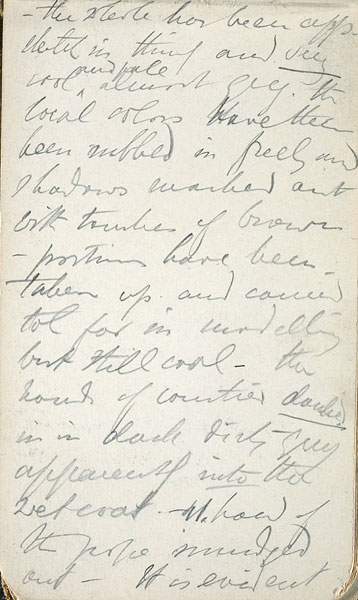 - the whole has been app
sketched in thinly and very
cool and pale almost grey. The
local colors have then
been rubbed in freely and
shadows marked out
with touches of brown
- portions have been
taken up and carried
tol far in modelling
but still cool - the
hands of courtier dashed
in in dark dirty grey
apparently into the
wet coat - H. hand of
the pope smudged
out - It is evident